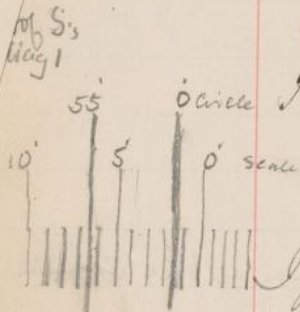 of S's
55' 0' circle
10' 5' 0' scale